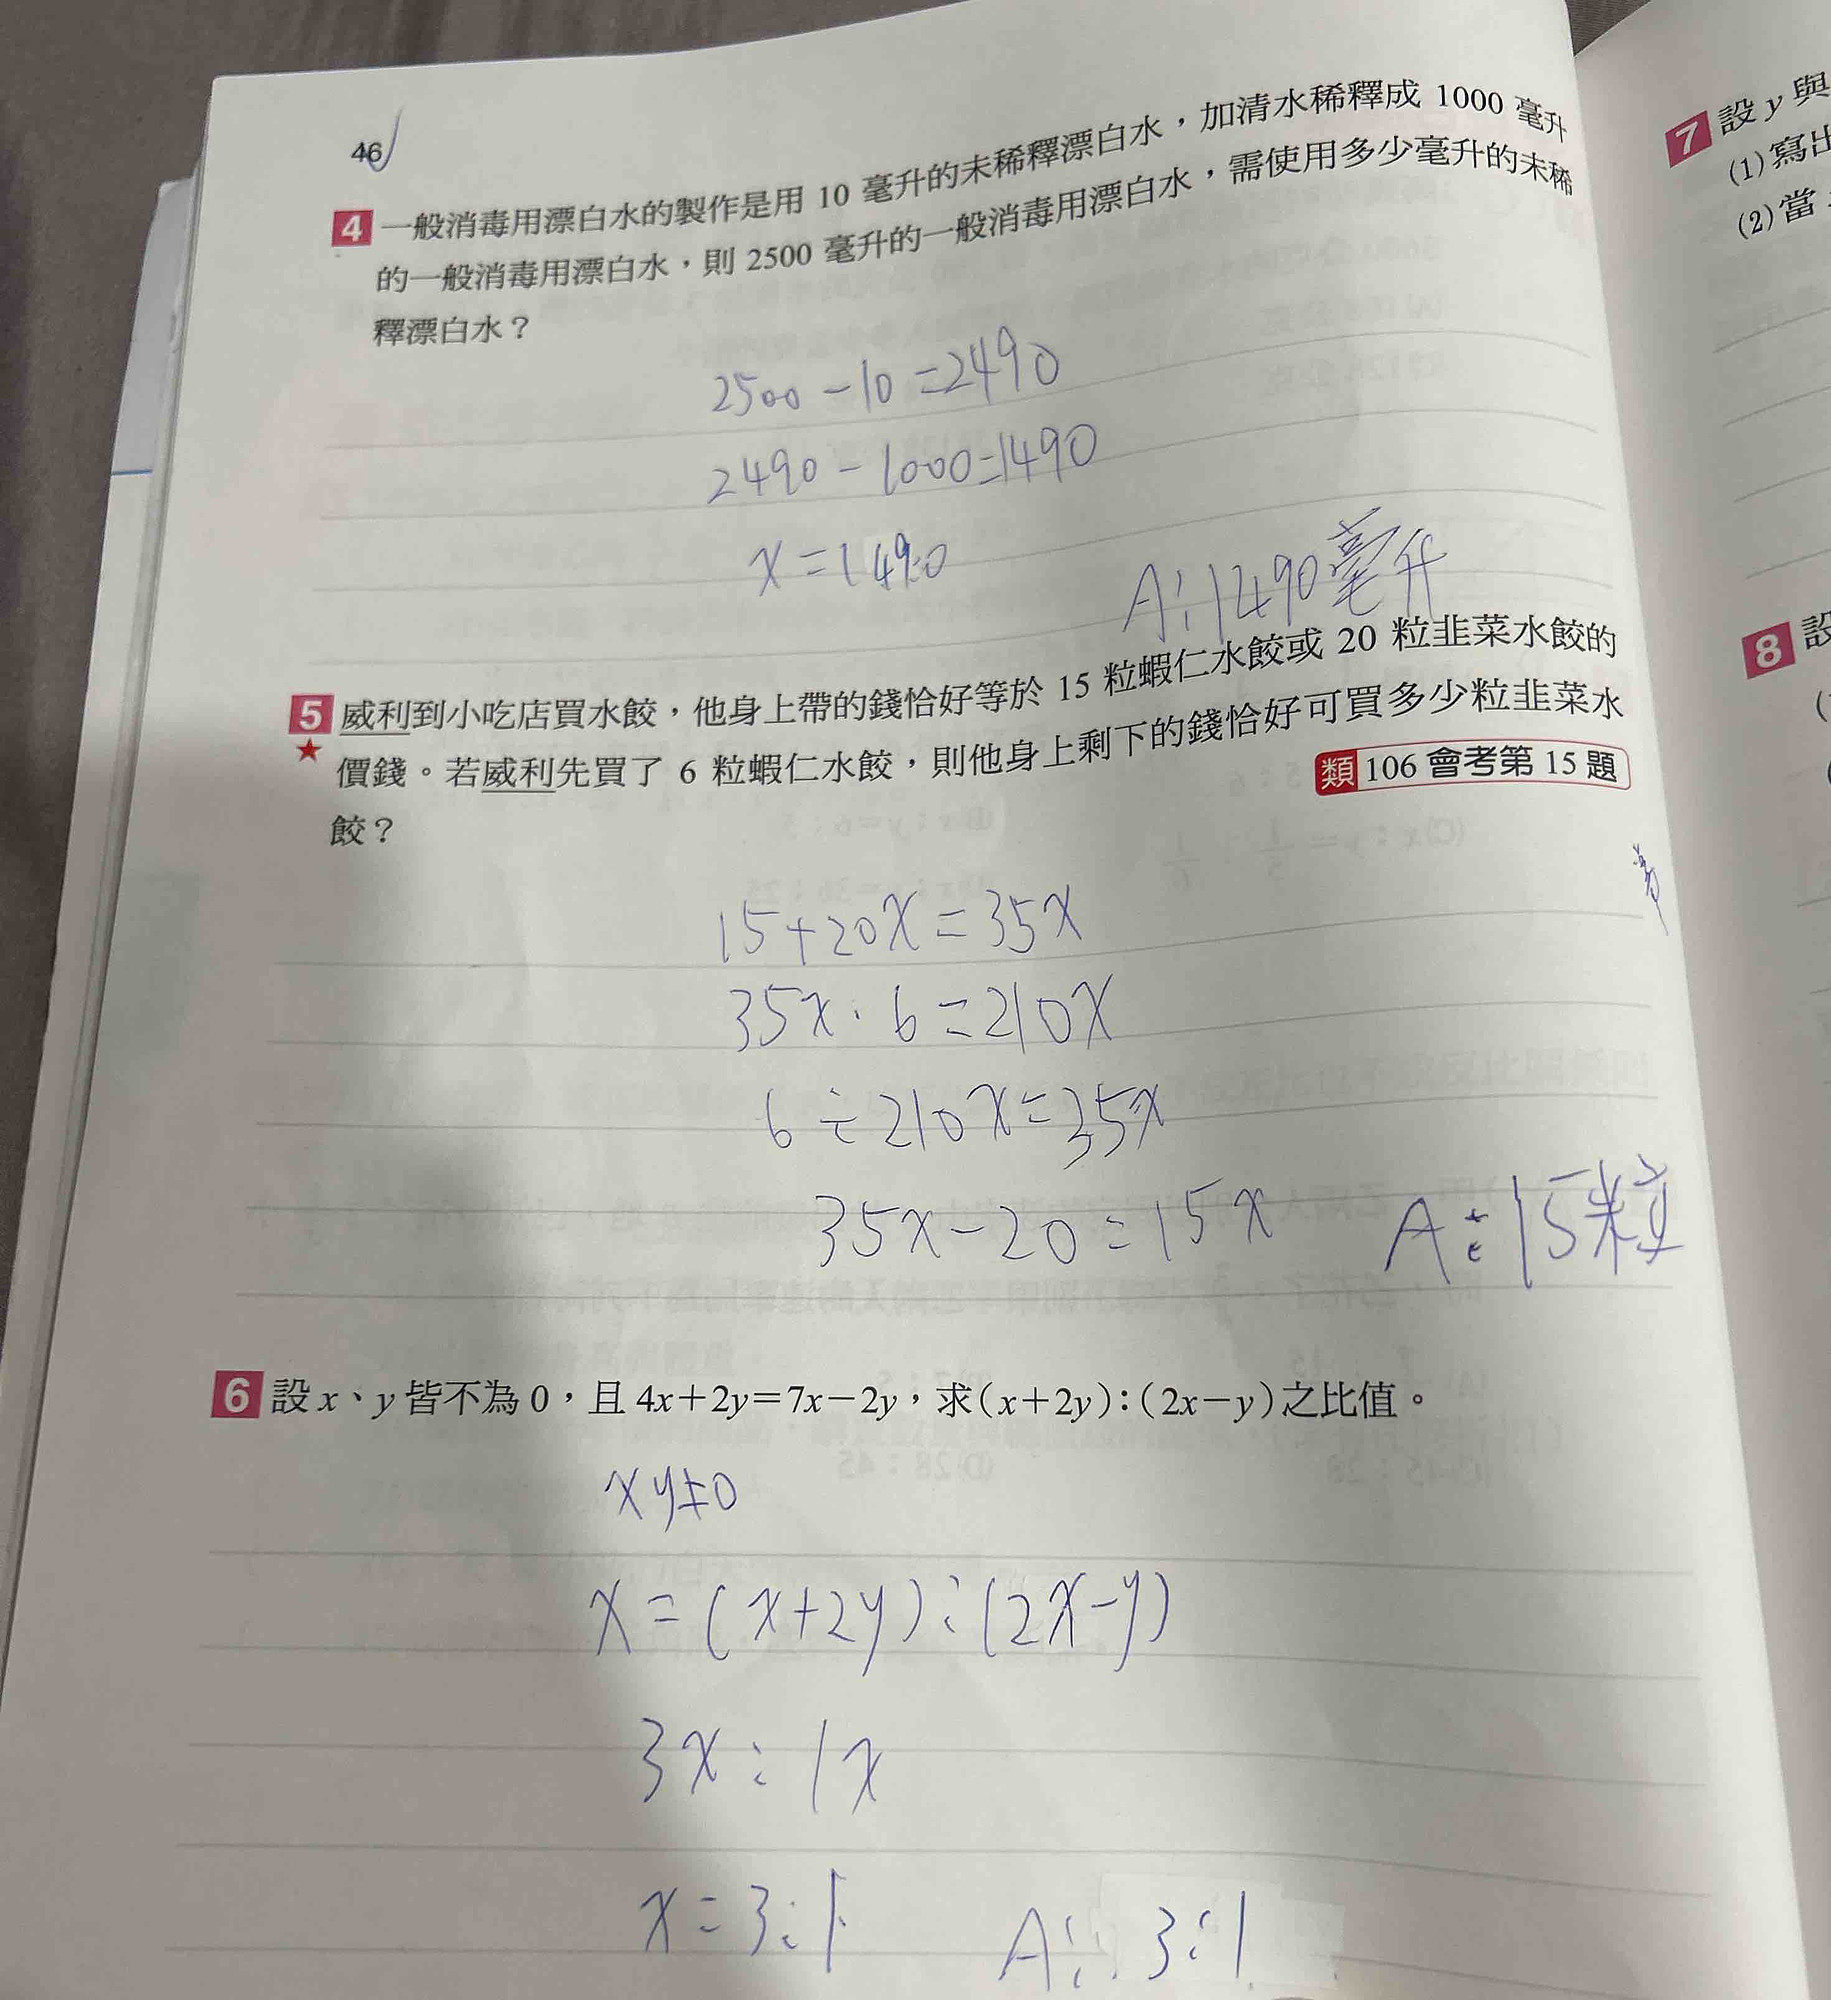 46
4 一般消毒用漂白水的製作是用 10 毫升的未稀釋漂白水,加清水稀釋成 1000 毫升
的一般消毒用漂白水,則 2500 毫升的一般消毒用漂白水,需使用多少毫升的未稀
釋漂白水?
2500-10=2490
2490-1000=1490
x=1490
A:1490毫升
5 威利到小吃店買水餃,他身上帶的錢恰好等於 15 粒蝦仁水餃或 20 粒韭菜水餃的
★ 價錢。若威利先買了 6 粒蝦仁水餃,則他身上剩下的錢恰好可買多少粒韭菜水
餃?
類 106 會考第 15 題
15+20x=35x
35x·6=210x
6÷210x=35x
35x-20=15x
A:15粒
6 設 x、y 皆不為 0,且 4x+2y=7x-2y,求(x+2y):(2x-y)之比值。
xy≠0
x=(x+2y):(2x-y)
3x:1x
x=3:1
A:3:1
7 設 y 與
(1)寫出
(2)當
8 設